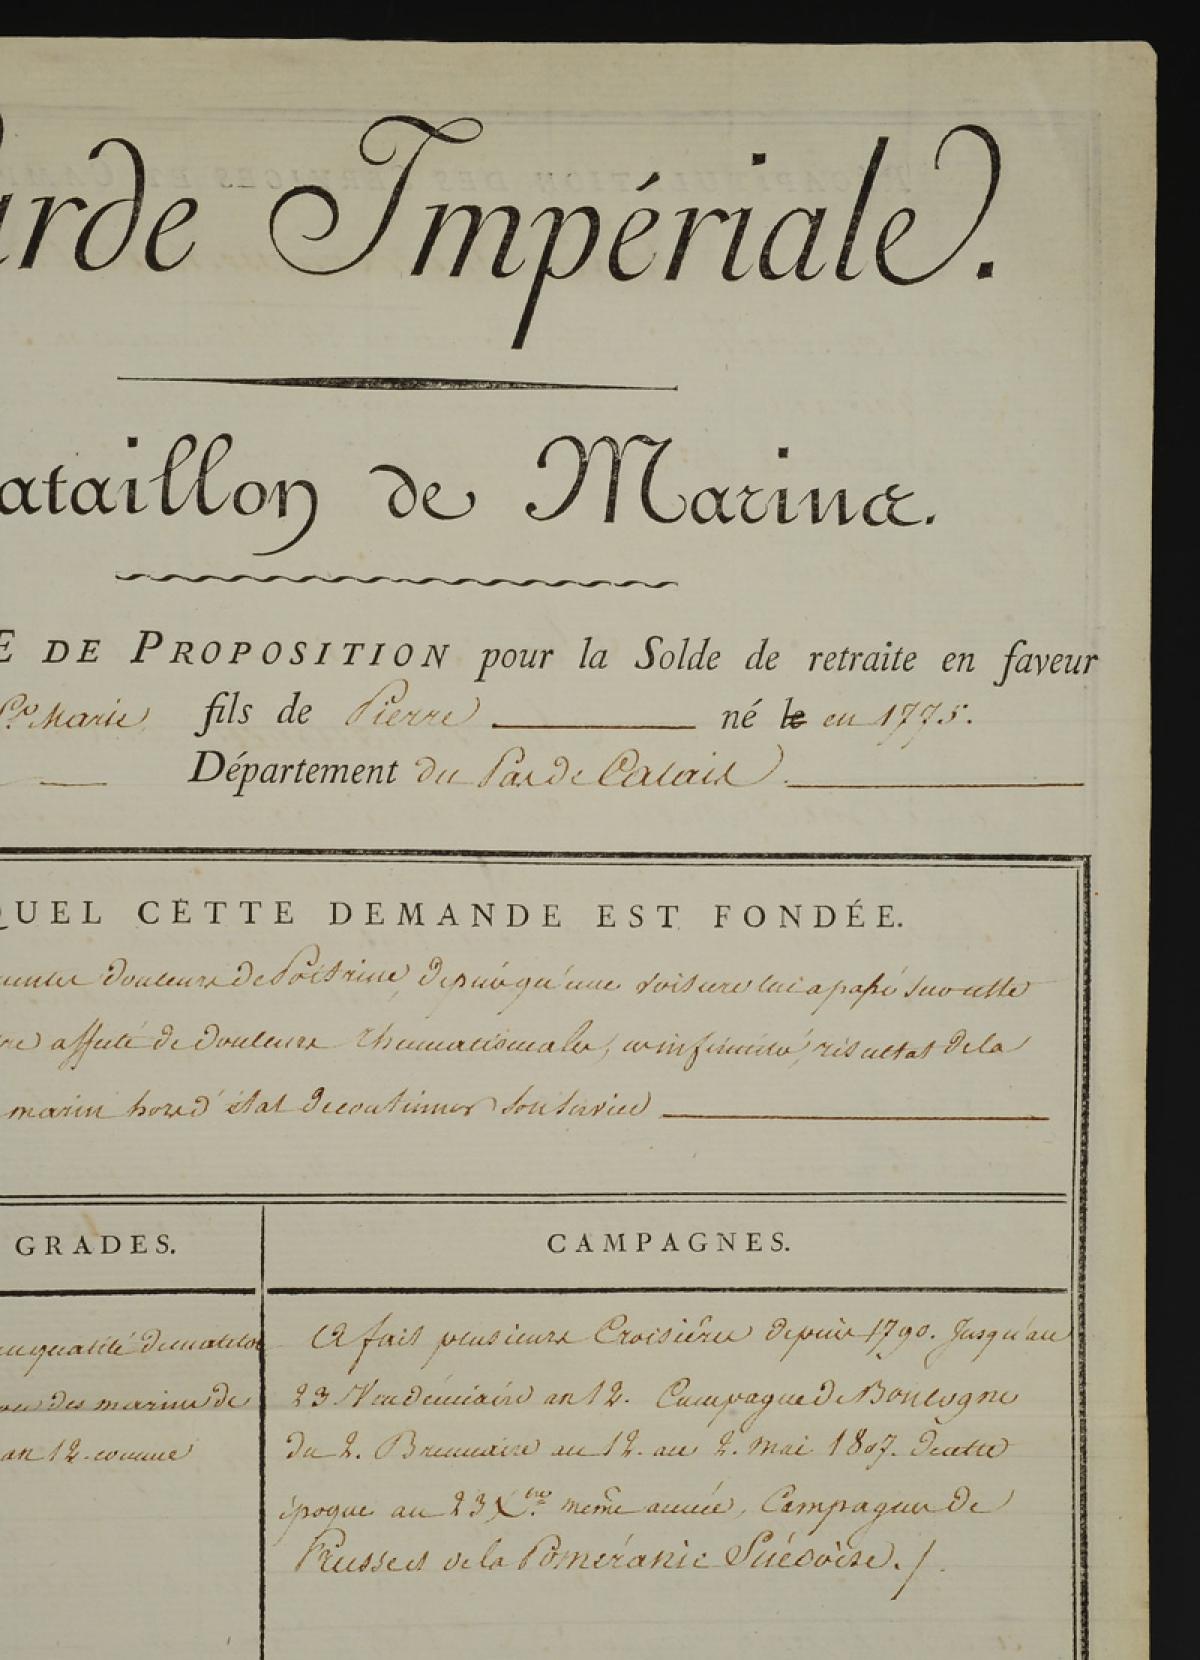 arde Impériale.
ataillon de Marins.
E DE PROPOSITION pour la Solde de retraite en faveur
Pre Marie fils de Pierre né le en 1775.
Département du Pas de Calais
QUEL CETTE DEMANDE EST FONDÉE.
douleurs de Poitrine, depuis qu'une voiture lui a passé sur cette
affecté de douleurs rhumatismales, infirmité, résultat de la
marin hors d'état de continuer son service
GRADES.
CAMPAGNES.
en qualité de matelot
des marins de
an 12. comme
A fait plusieurs Croisières depuis 1790. Jusqu'au
23 Vendémiaire an 12. Campagne de Boulogne
du 2. Brumaire an 12. au 2. mai 1807. de cette
époque au 23 Xbre. même année, Campagnes de
Prusse et de la Poméranie Suédoise./.